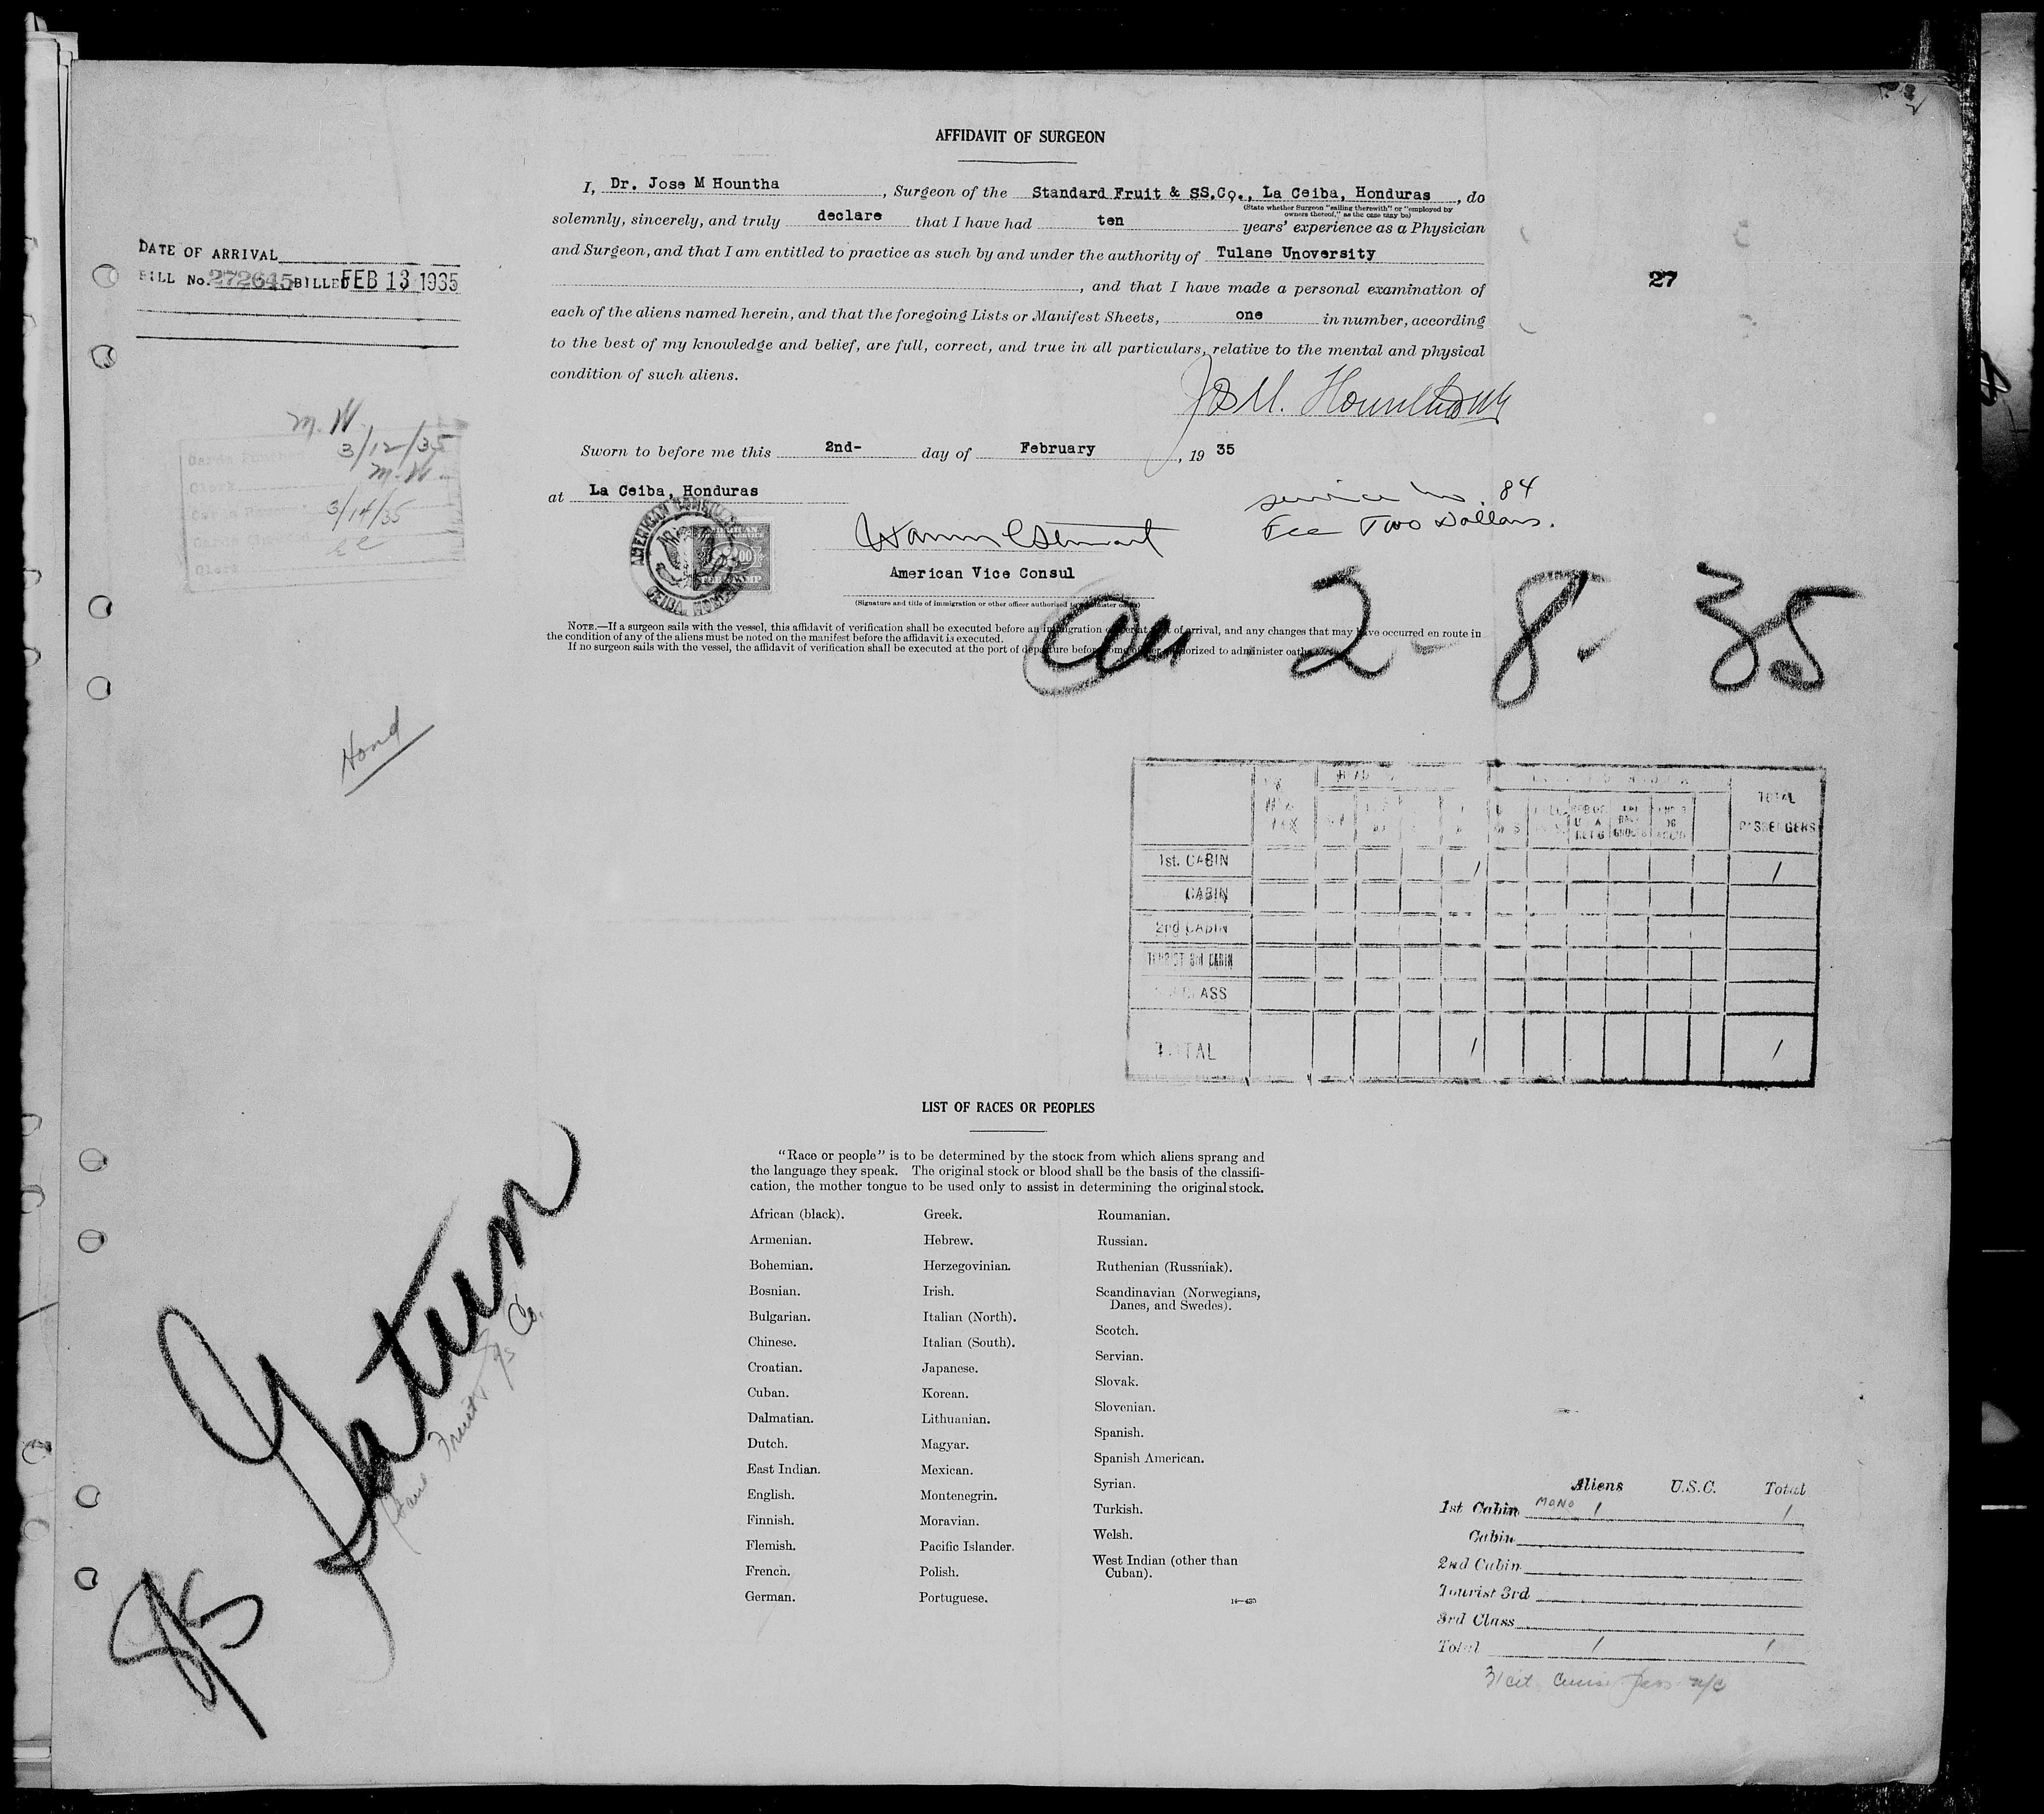 AFFIDAVIT OF SURGEON
I, Dr. Jose M Hountha, Surgeon of the Standard Fruit & SS.Co., La Ceiba, Honduras, do
(State whether Surgeon "sailing therewith" or "employed by
owners thereof," as the case may be)
solemnly, sincerely, and truly declare that I have had ten years' experience as a Physician
and Surgeon, and that I am entitled to practice as such by and under the authority of Tulane Unoversity
, and that I have made a personal examination of
each of the aliens named herein, and that the foregoing Lists or Manifest Sheets, one in number, according
to the best of my knowledge and belief, are full, correct, and true in all particulars, relative to the mental and physical
condition of such aliens.
DATE OF ARRIVAL
BILL No. 272645 BILLED FEB 13 1935
27
M.W.
3/12/35
M.W.
3/14/35
Clerk
Clerk
Sworn to before me this 2nd- day of February, 19 35
at La Ceiba, Honduras
service no. 84
Fee Two Dollars.
AMERICAN
CEIBA, HONDURAS
FEE STAMP
American Vice Consul
(Signature and title of immigration or other officer authorized to administer oaths)
NOTE.—If a surgeon sails with the vessel, this affidavit of verification shall be executed before an immigration officer at port of arrival, and any changes that may have occurred en route in
the condition of any of the aliens must be noted on the manifest before the affidavit is executed.
If no surgeon sails with the vessel, the affidavit of verification shall be executed at the port of departure before some officer authorized to administer oaths
2-8-35
Hond
TOTAL
PASSENGERS
1st. CABIN 1 1
CABIN
2nd CABIN
TOURIST 3rd CABIN
CLASS
TOTAL 1 1
LIST OF RACES OR PEOPLES
"Race or people" is to be determined by the stock from which aliens sprang and
the language they speak. The original stock or blood shall be the basis of the classifi-
cation, the mother tongue to be used only to assist in determining the original stock.
African (black).
Armenian.
Bohemian.
Bosnian.
Bulgarian.
Chinese.
Croatian.
Cuban.
Dalmatian.
Dutch.
East Indian.
English.
Finnish.
Flemish.
French.
German.
Greek.
Hebrew.
Herzegovinian.
Irish.
Italian (North).
Italian (South).
Japanese.
Korean.
Lithuanian.
Magyar.
Mexican.
Montenegrin.
Moravian.
Pacific Islander.
Polish.
Portuguese.
Roumanian.
Russian.
Ruthenian (Russniak).
Scandinavian (Norwegians,
Danes, and Swedes).
Scotch.
Servian.
Slovak.
Slovenian.
Spanish.
Spanish American.
Syrian.
Turkish.
Welsh.
West Indian (other than
Cuban).
14—430
S/S Gatun
Stand Fruit & S/S Co.
Aliens U.S.C. Total
1st Cabin MONO 1 1
Cabin
2nd Cabin
Tourist 3rd
3rd Class
Total 1 1